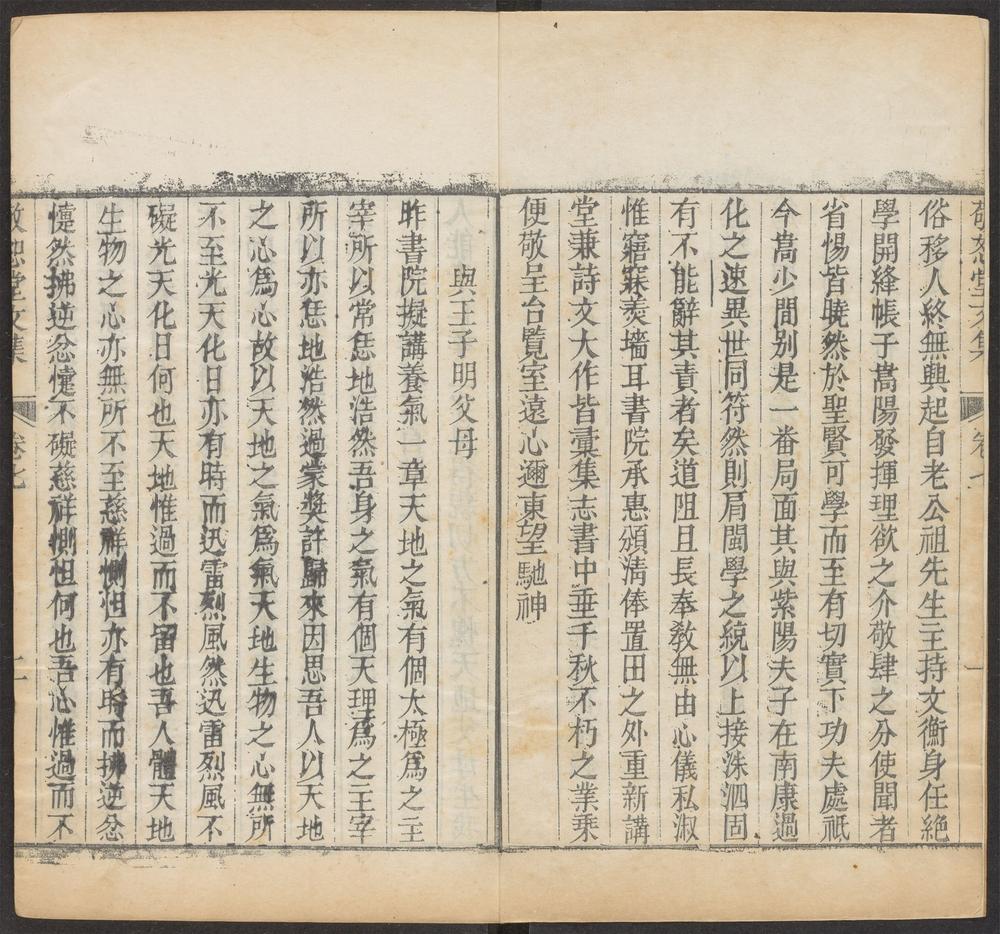 敬恕堂文集 卷七 一
俗移人終無興起自老公祖先生主持文衡身任絶
學開絳帳于嵩陽發揮理欲之介敬肆之分使聞者
省惕皆曉然於聖賢可學而至有切實下功夫處祇
今嵩少間别是一番局面其與紫陽夫子在南康過
化之速異世同符然則肩閩學之統以上接洙泗固
有不能辭其責者矣道阻且長奉敎無由心儀私淑
惟寤寐羹墻耳書院承惠頒淸俸置田之外重新講
堂兼詩文大作皆彙集志書中垂千秋不朽之業乘
便敬呈台覽室遠心邇東望馳神
與王子明父母
昨書院擬講養氣一章天地之氣有個太極爲之主
宰所以常恁地浩然吾身之氣有個天理爲之主宰
所以亦恁地浩然過蒙獎許歸來因思吾人以天地
之心爲心故以天地之氣爲氣天地生物之心無所
不至光天化日亦有時而迅雷烈風然迅雷烈風不
礙光天化日何也天地惟過而不畱也吾人體天地
生物之心亦無所不至慈祥惻怛亦有時而拂逆忿
懥然拂逆忿懥不礙慈祥惻怛何也吾心惟過而不
敬恕堂文集 卷七 二